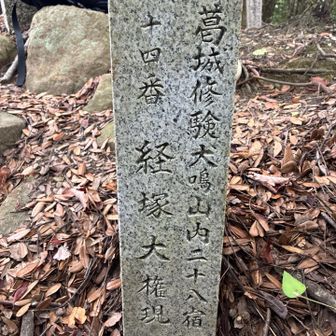 葛城修験大鳴山内二十八宿
十四番 経塚大権現